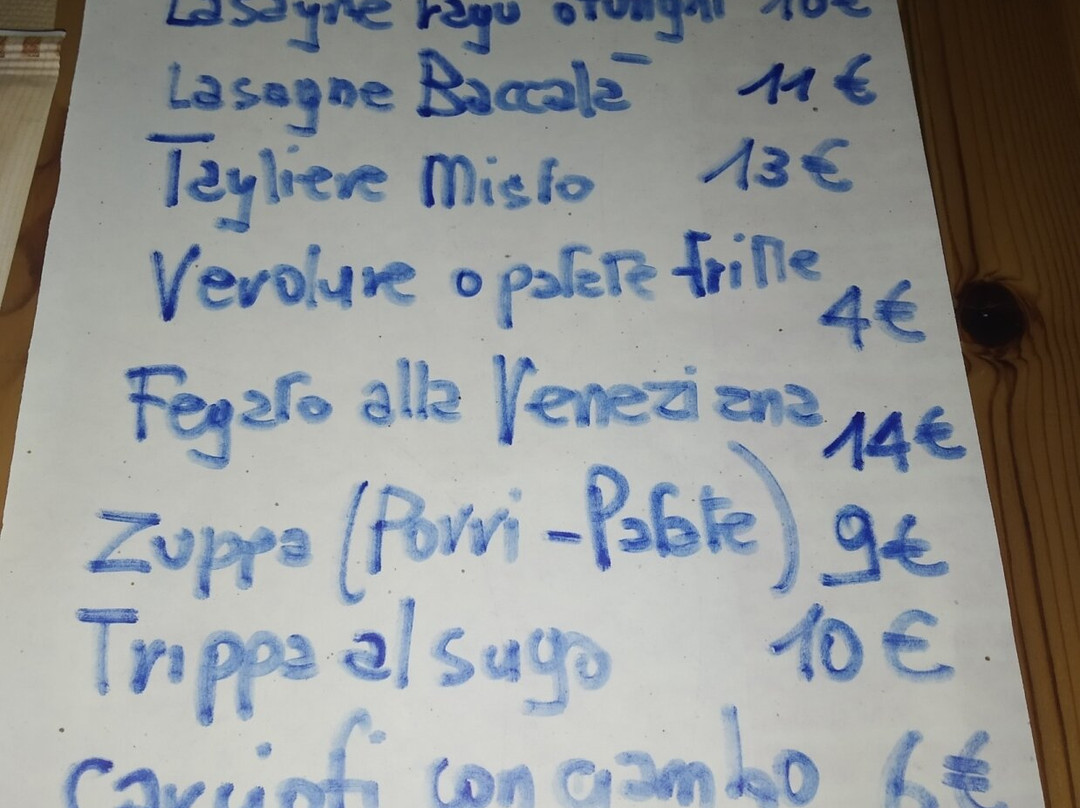 Lasagne ragù o funghi 10€
Lasagne Baccalà 11€
Tagliere Misto 13€
Verdure o patate fritte
4€
Fegato alla Veneziana
14€
Zuppa (Porri - Patate) 9€
Trippa al sugo 10€
Carciofi con gambo 6€